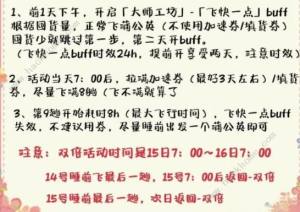 1、前1天下午，开启「大师工坊」-「飞快一点」buff
根据囤货量，正常飞萌公英（不使用加速券/填货券）
囤货少就跳过第一步，第二天开buff。
（飞快一点buff时效24h，提前开享受两天，注意时效）
2、活动当天7：00后，拉满加速券（最好3天左右）/填货
券，尽量飞满8趟（飞不满就算了
3、第9趟开始耗时8h（最大飞行时间），飞快一点buff
失效，不建议用券，尽量睡前出发一个萌公英即可
注意：双倍活动时间是15日7：00～16日7：00
14号睡前飞最后一趟，15号7：01后返回-双倍
15号睡前最后一趟，次日返回-双倍